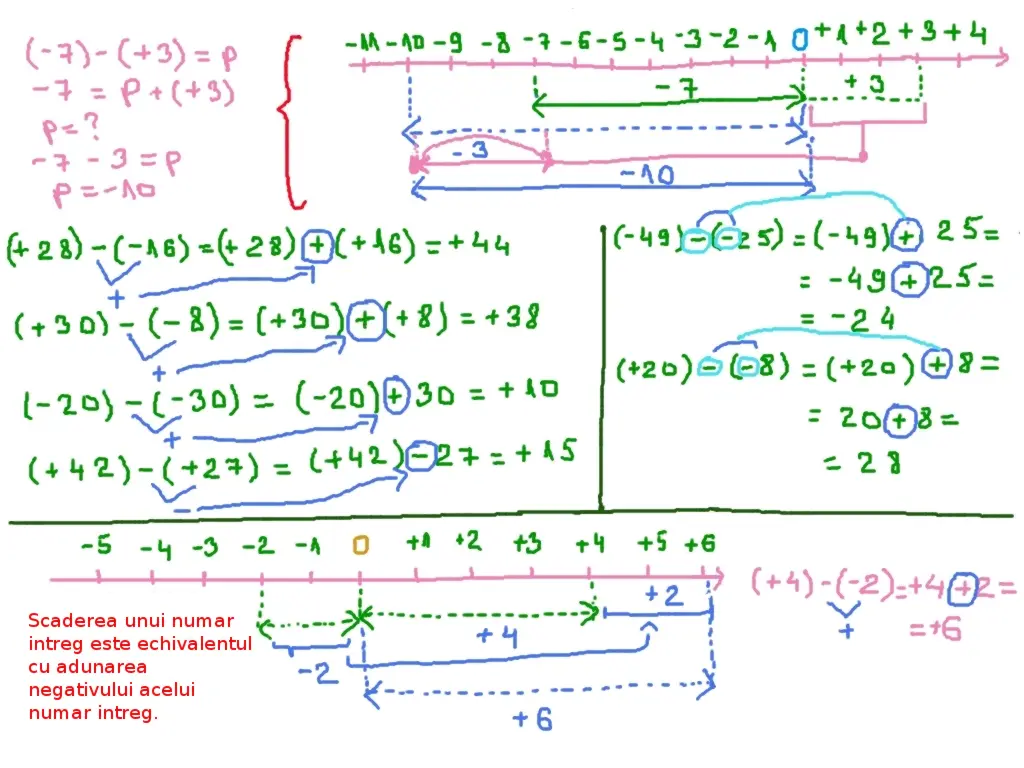 (-7) - (+3) = p
-7 = p + (+3)
p = ?
-7 - 3 = p
p = -10
-11 -10 -9 -8 -7 -6 -5 -4 -3 -2 -1 0 +1 +2 +3 +4
-7
+3
-3
-10
(+28) - (-16) = (+28) + (+16) = +44
+
(+30) - (-8) = (+30) + (+8) = +38
+
(-20) - (-30) = (-20) + 30 = +10
+
(+42) - (+27) = (+42) - 27 = +15
-
(-49) - (-25) = (-49) + 25 =
= -49 + 25 =
= -24
(+20) - (-8) = (+20) + 8 =
= 20 + 8 =
= 28
-5 -4 -3 -2 -1 0 +1 +2 +3 +4 +5 +6
+2
+4
-2
+6
(+4) - (-2) = +4 + 2 =
+
= +6
Scaderea unui numar
intreg este echivalentul
cu adunarea
negativului acelui
numar intreg.